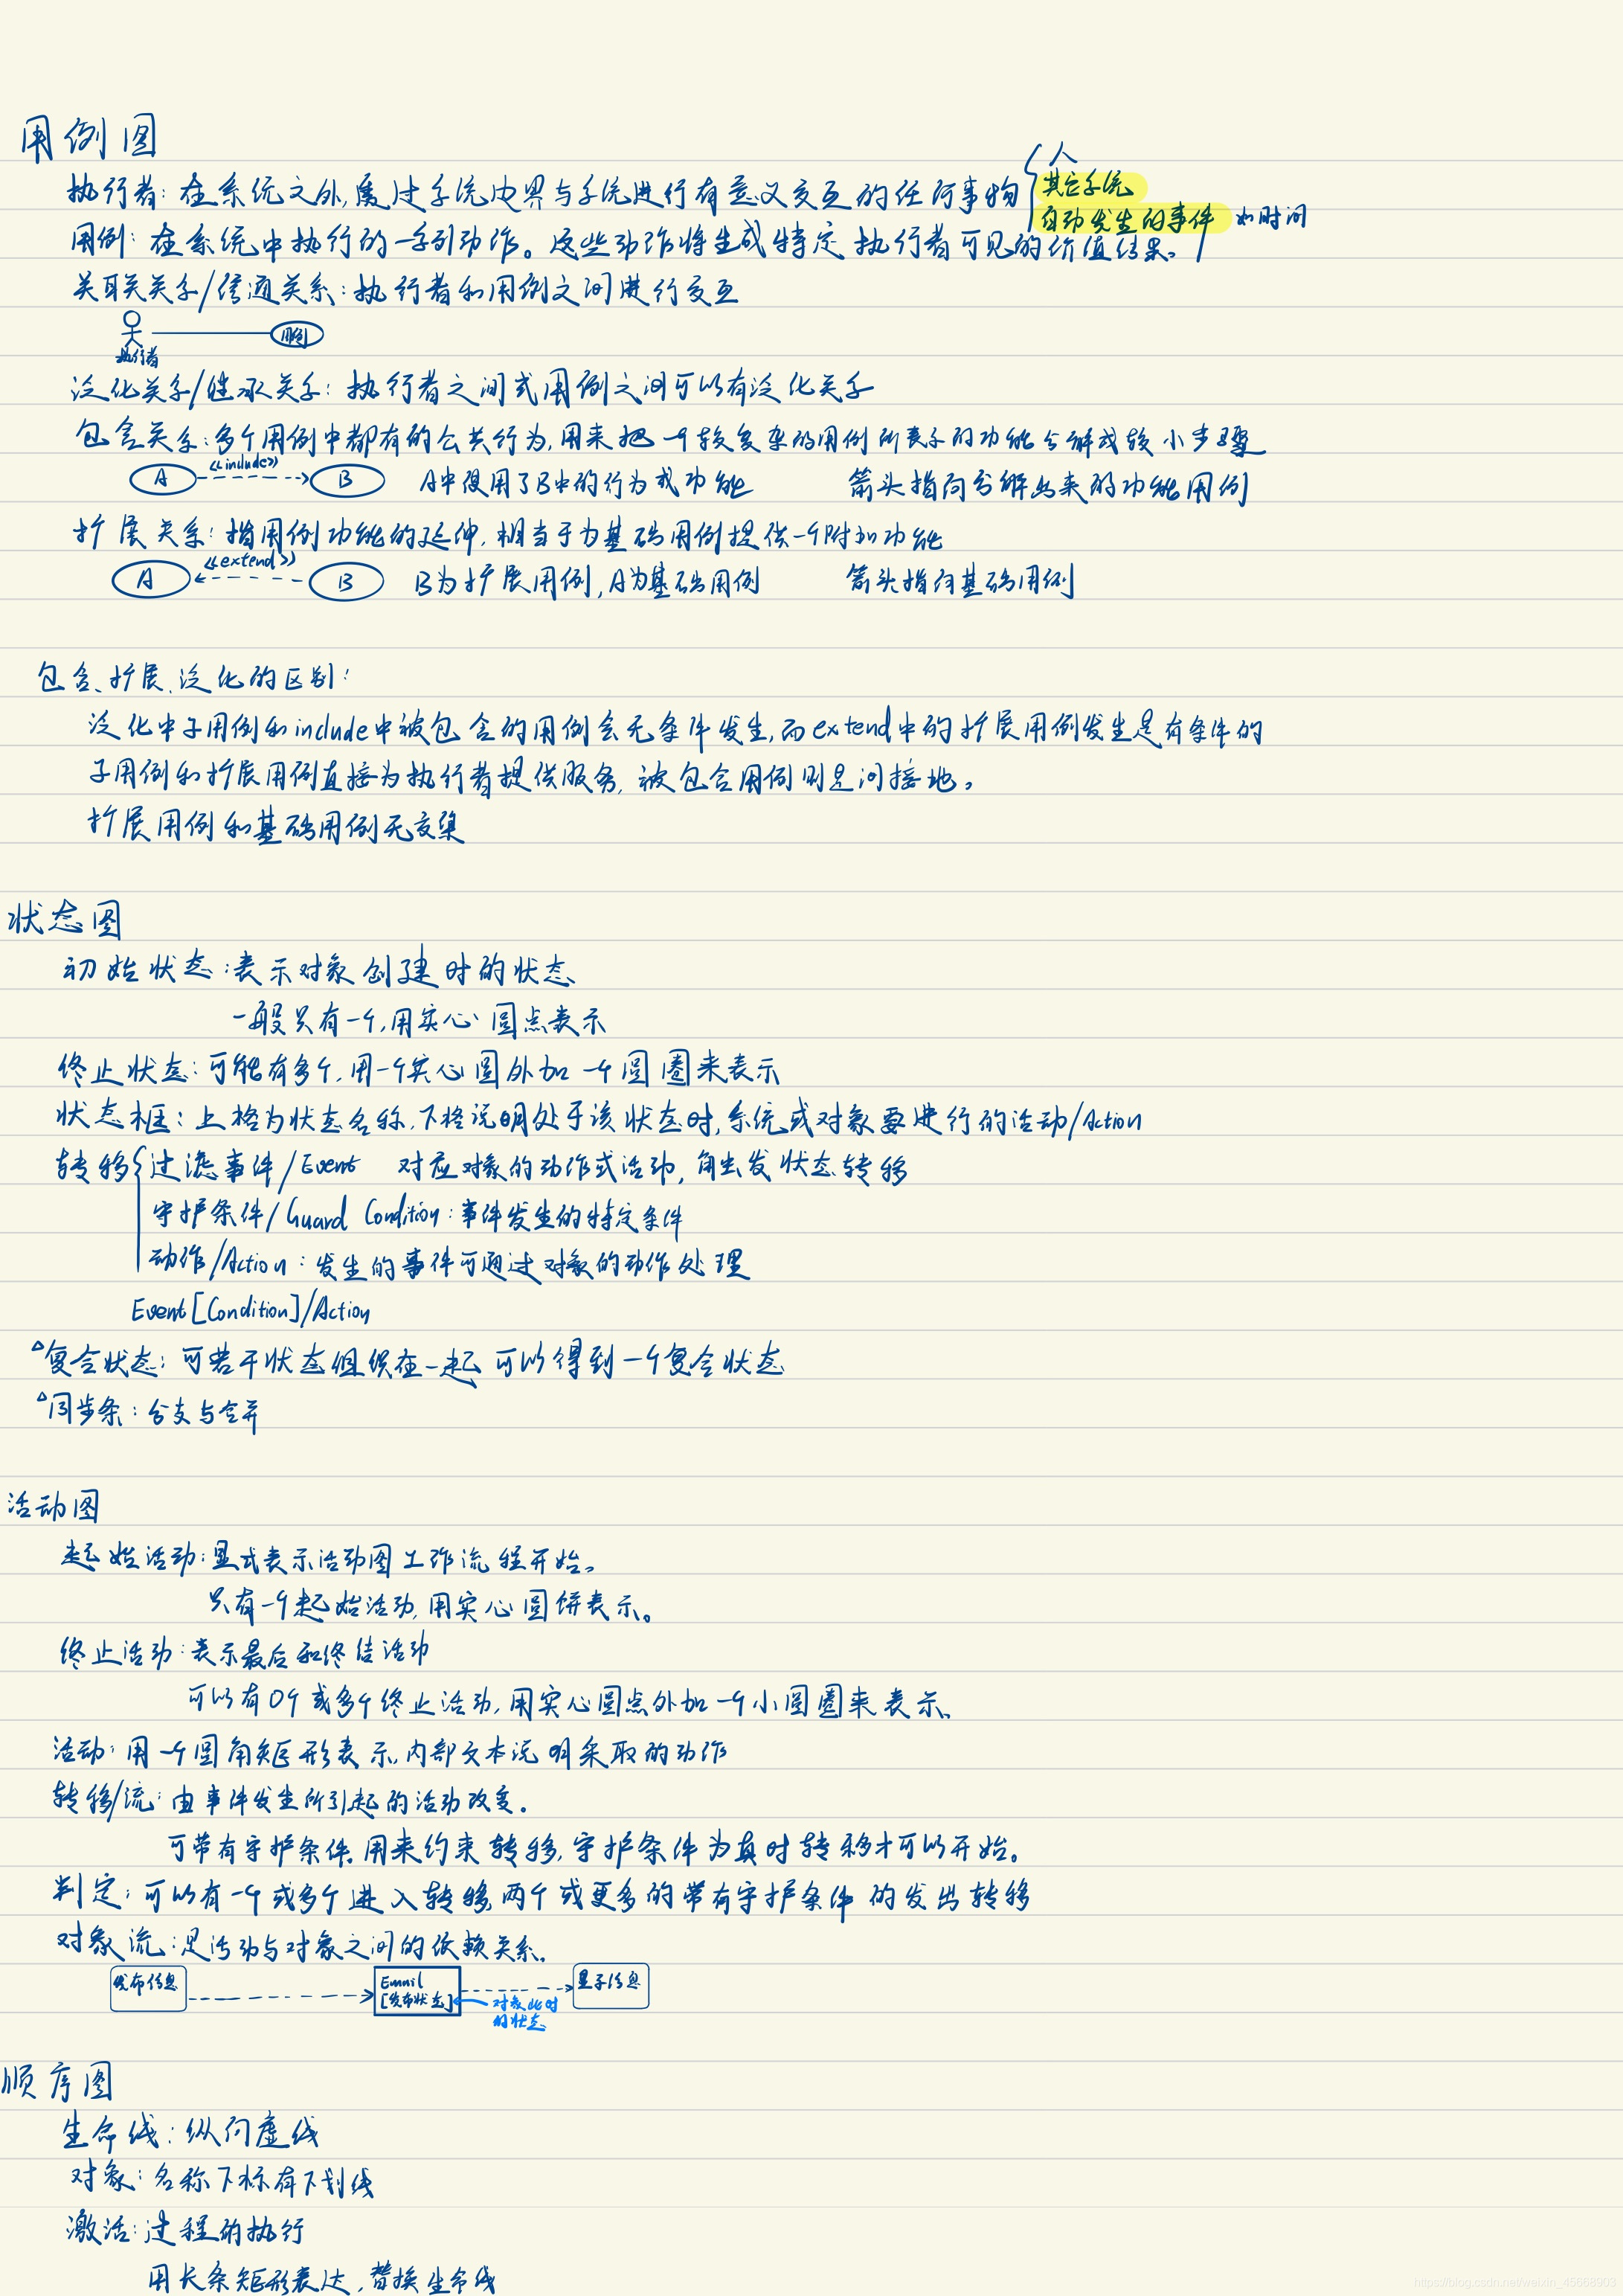 用例图
执行者：在系统之外,透过系统边界与系统进行有意义交互的任何事物
人
其它系统
自动发生的事件 如时间
用例：在系统中执行的一系列动作。这些动作将生成特定执行者可见的价值结果。
关联关系/通信关系：执行者和用例之间进行交互
执行者 用例
泛化关系/继承关系：执行者之间或用例之间可以有泛化关系
包含关系：多个用例中都有的公共行为,用来把一个较复杂的用例所表示的功能分解成较小步骤
A <<include>> B A中使用了B中的行为或功能 箭头指向分解出来的功能用例
扩展关系：指用例功能的延伸,相当于为基础用例提供一个附加功能
A <<extend>> B B为扩展用例,A为基础用例 箭头指向基础用例
包含、扩展、泛化的区别：
泛化中子用例和include中被包含的用例会无条件发生,而extend中的扩展用例发生是有条件的
子用例和扩展用例直接为执行者提供服务,被包含用例则是间接地。
扩展用例和基础用例无交集
状态图
初始状态：表示对象创建时的状态
一般只有一个,用实心圆点表示
终止状态：可能有多个,用一个实心圆外加一个圆圈来表示
状态框：上格为状态名称,下格说明处于该状态时,系统或对象要进行的活动/Action
转移 过渡事件/Event 对应对象的动作或活动,触发状态转移
守护条件/Guard Condition：事件发生的特定条件
动作/Action：发生的事件可通过对象的动作处理
Event[Condition]/Action
△复合状态：可若干状态组织在一起 可以得到一个复合状态
△同步条：分支与合并
活动图
起始活动：显式表示活动图工作流程开始。
只有一个起始活动,用实心圆饼表示。
终止活动：表示最后和终结活动
可以有0个或多个终止活动,用实心圆点外加一个小圆圈来表示、
活动：用一个圆角矩形表示,内部文本说明采取的动作
转移/流：由事件发生所引起的活动改变。
可带有守护条件,用来约束转移,守护条件为真时转移才可以开始。
判定：可以有一个或多个进入转移,两个或更多的带有守护条件的发出转移
对象流：是活动与对象之间的依赖关系、
发布信息 Email 显示信息
[发布状态] 对象此时
的状态
顺序图
生命线：纵向虚线
对象：名称下标有下划线
激活：过程的执行
用长条矩形表达,替换生命线
https://blog.csdn.net/weixin_45668903